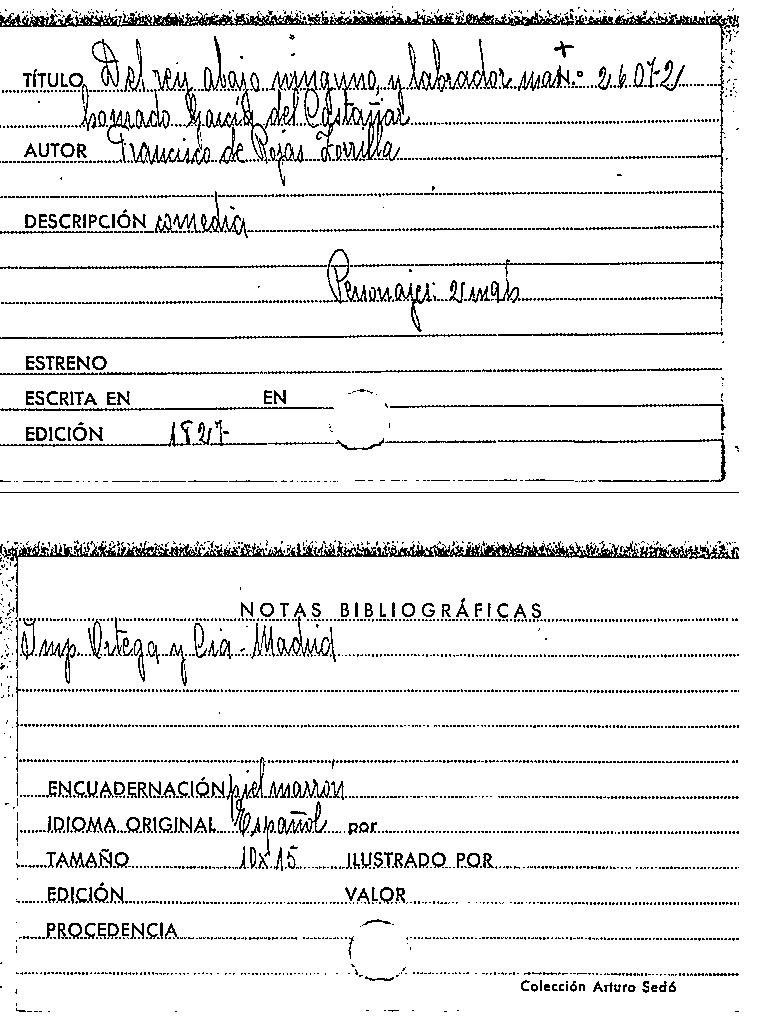 TÍTULO Del rey abajo ninguno, y labrador mas N.º 2607-2
+
honrado García del Castañar
AUTOR Francisco de Rojas Zorrilla
DESCRIPCIÓN comedia
Personajes:
ESTRENO
ESCRITA EN EN
EDICIÓN 1827
NOTAS BIBLIOGRÁFICAS
Imp. Ortega y Cia - Madrid
ENCUADERNACIÓN piel marrón
IDIOMA ORIGINAL Español por
TAMAÑO 10x15 ILUSTRADO POR
EDICIÓN VALOR
PROCEDENCIA
Colección Arturo Sedó